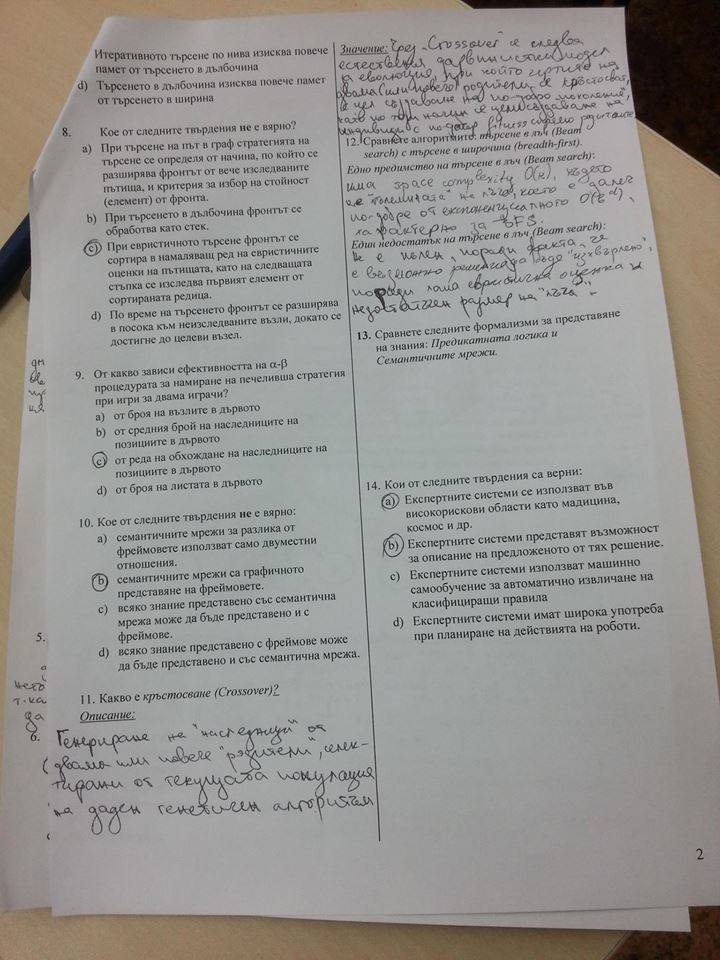 Итеративното търсене по нива изисква повече
памет от търсенето в дълбочина
d) Търсенето в дълбочина изисква повече памет
от търсенето в ширина
8. Кое от следните твърдения не е вярно?
a) При търсене на път в граф стратегията на
търсене се определя от начина, по който се
разширява фронтът от вече изследваните
пътища, и критерия за избор на стойност
(елемент) от фронта.
b) При търсенето в дълбочина фронтът се
обработва като стек.
c) При евристичното търсене фронтът се
сортира в намаляващ ред на евристичните
оценки на пътищата, като на следващата
стъпка се изследва първият елемент от
сортираната редица.
d) По време на търсенето фронтът се разширява
в посока към неизследваните възли, докато се
достигне до целеви възел.
9. От какво зависи ефективността на α-β
процедурата за намиране на печеливша стратегия
при игри за двама играчи?
a) от броя на възлите в дървото
b) от средния брой на наследниците на
позициите в дървото
c) от реда на обхождане на наследниците на
позициите в дървото
d) от броя на листата в дървото
10. Кое от следните твърдения не е вярно:
a) семантичните мрежи за разлика от
фреймовете използват само двуместни
отношения.
b) семантичните мрежи са графичното
представяне на фреймовете.
c) всяко знание представено със семантична
мрежа може да бъде представено и с
фреймове.
d) всяко знание представено с фреймове може
да бъде представено и със семантична мрежа.
11. Какво е кръстосване (Crossover)?
Описание:
Генериране на "наследници" от
двама или повече "родители", селек-
тирани от текущата популация
на даден генетичен алгоритъм
Значение: Чрез "Crossover" се следва
естествения дарвинистки модел
за еволюция, при който чертите на
двама (или повече) родители се кръстосват,
с цел създаване на "по-добро поколение",
като по този начин се цели създаване на
индивиди с по-добър fitness спрямо родителите
12. Сравнете алгоритмите: търсене в лъч (Beam
search) с търсене в широчина (breadth-first).
Едно предимство на търсене в лъч (Beam search):
има space complexity O(k), където
k е "големината" на лъча, което е далеч
по-добре от експоненциалното O(b^d),
характерно за BFS.
Един недостатък на търсене в лъч (Beam search):
Не е пълен, поради факта, че
е възможно решение да бъде "изхвърлено",
поради лоша евристична оценка и
недостатъчен размер на "лъча".
13. Сравнете следните формализми за представяне
на знания: Предикатната логика и
Семантичните мрежи.
14. Кои от следните твърдения са верни:
a) Експертните системи се използват във
високорискови области като мадицина,
космос и др.
b) Експертните системи представят възможност
за описание на предложеното от тях решение.
c) Експертните системи използват машинно
самообучение за автоматично извличане на
класифициращи правила
d) Експертните системи имат широка употреба
при планиране на действията на роботи.
5.
6.
да
2